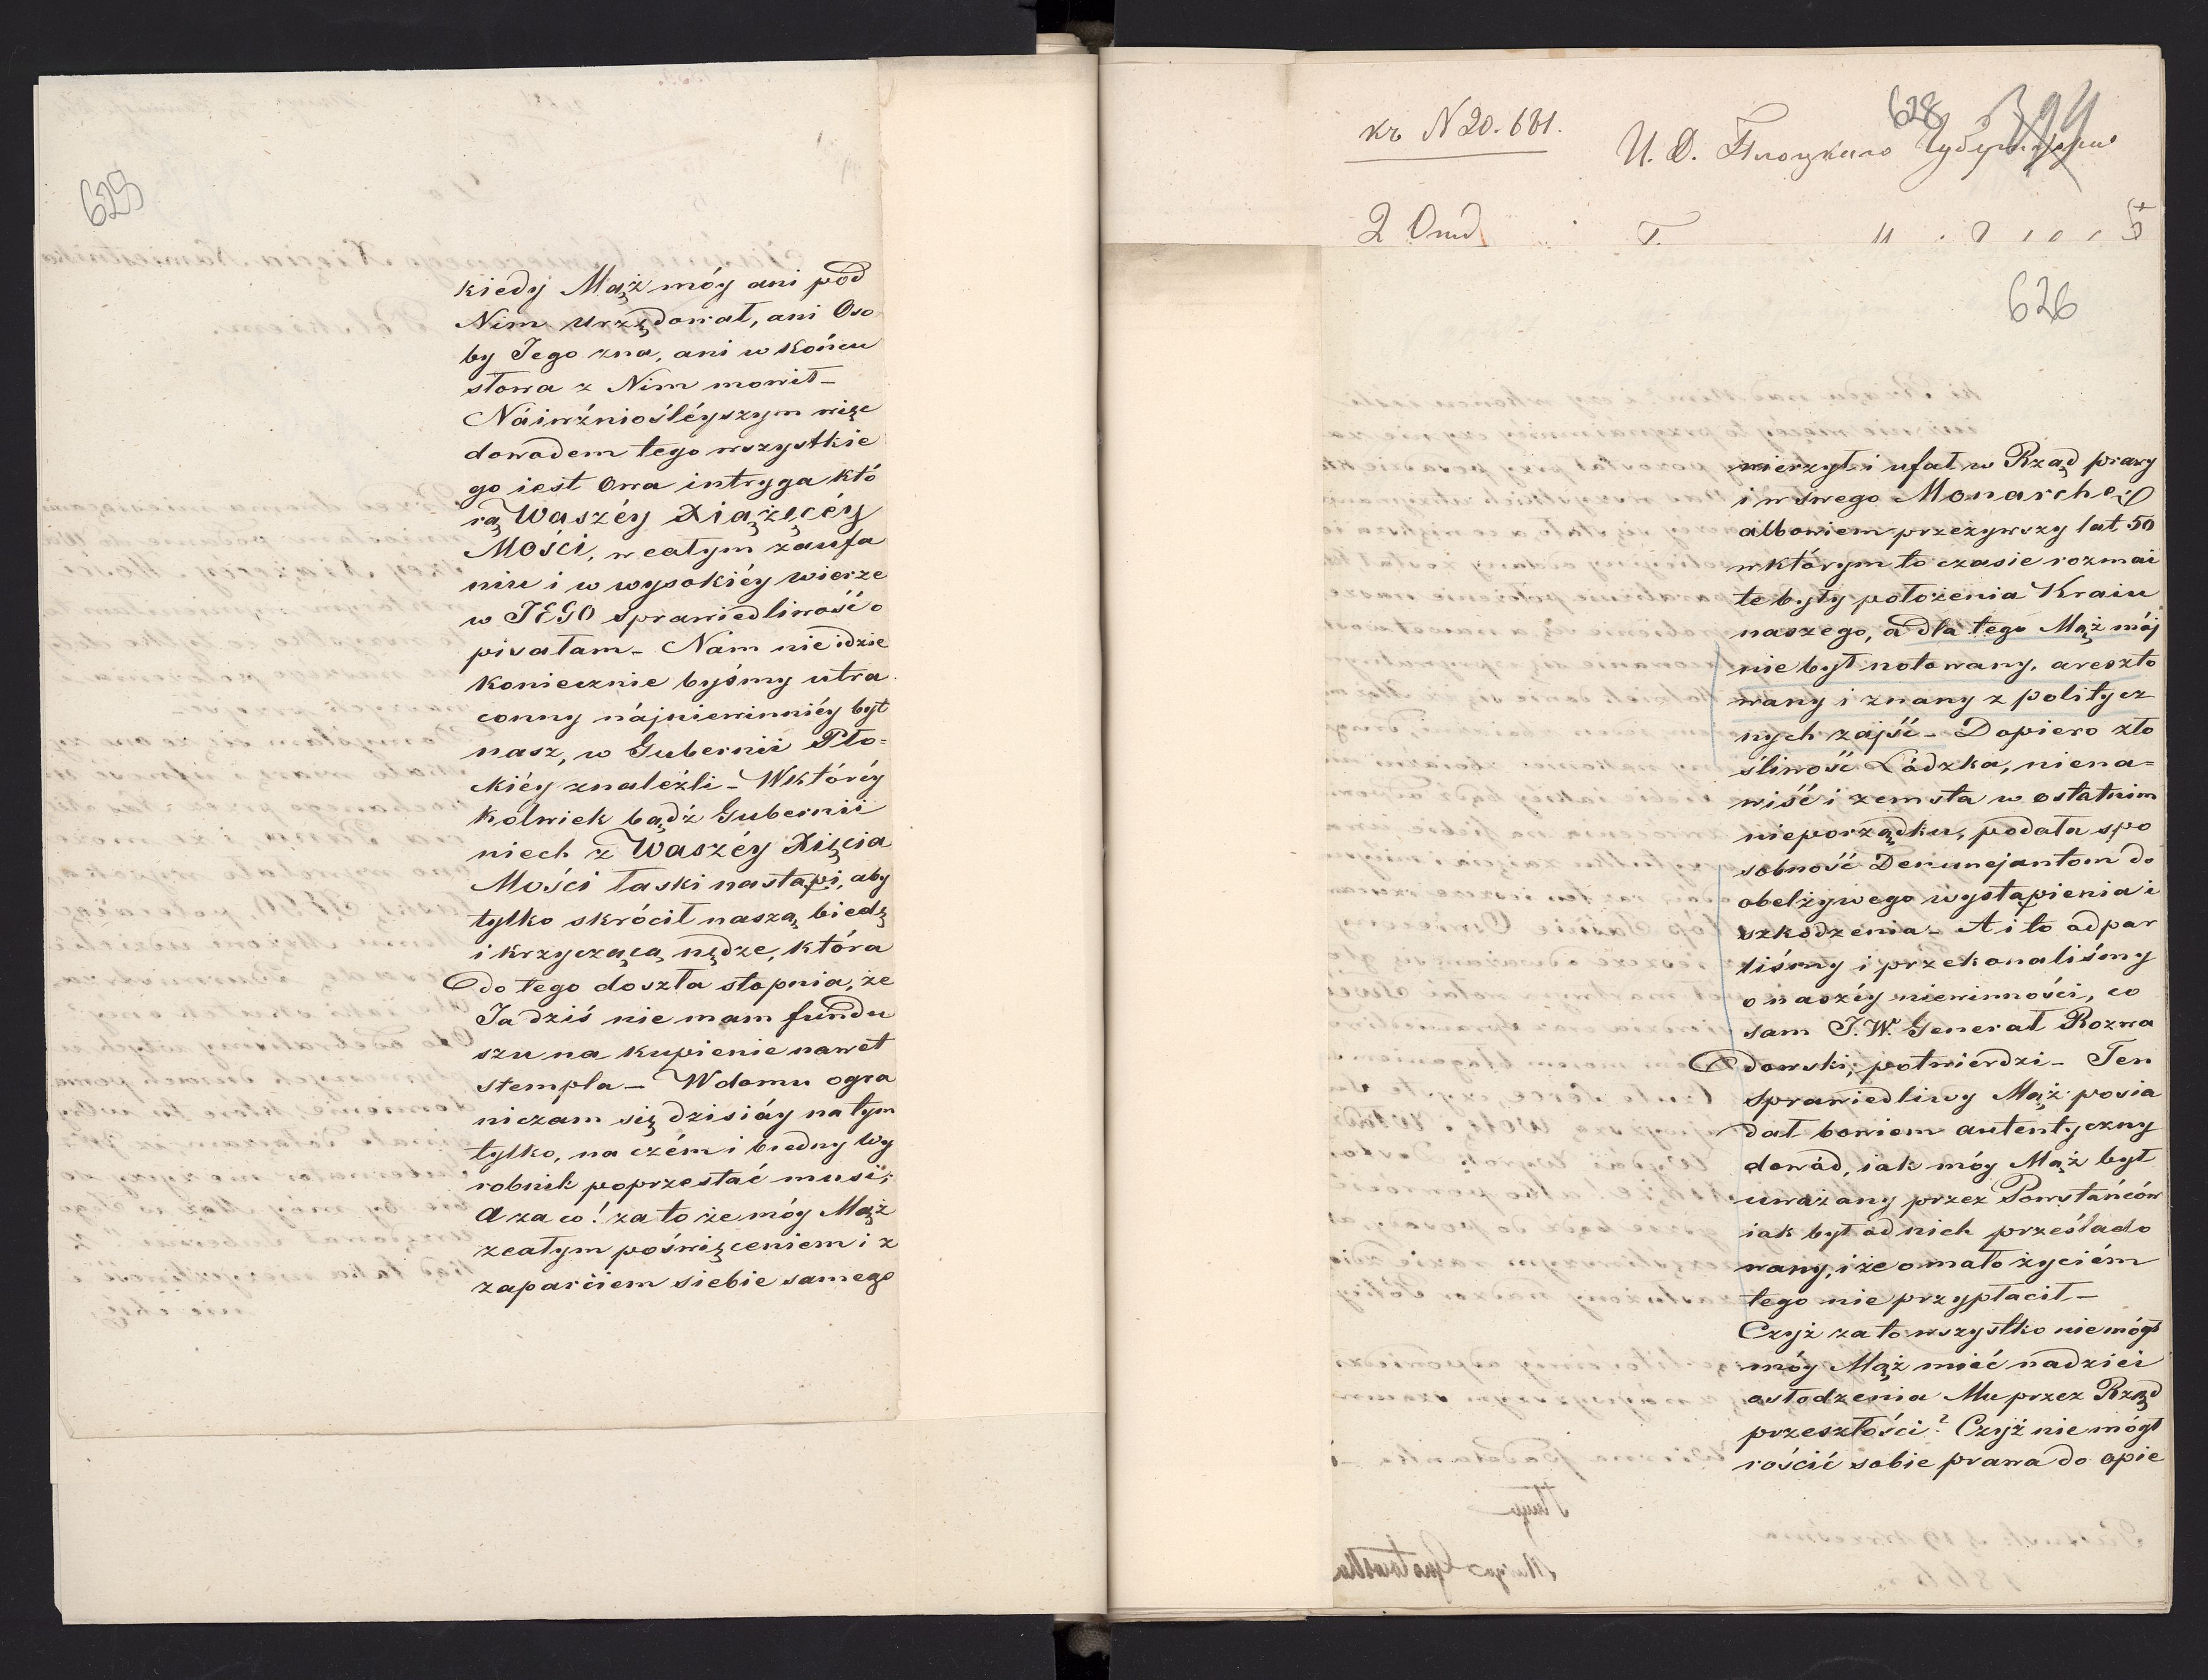 629
kiedy Mąż móy ani pod
Nim urzędował, ani Oso
by Jego zna, ani w końcu
słowa z Nim mowił –
Náiwźniośléyszym więc
dowodem tego wszystkie
go iest Owa intryga któ
rą Waszéy Xiążęcéy
Mości, w całym zaufa
niu i w wysokiéy wierze
w JEGO sprawiedliwość o
pisałam – Nam nie idzie
koniecznie byśmy utra
conny nájniewinniéy byt
nasz, w Gubernii Pło=
ckiéy znaleźli – W któréy
kolwiek bądź Gubernii
niech z Waszéy Xięcia
Mości łaski nastąpi, aby
tylko skrócił naszą biedę
i krzyczącą nędze, która
do tego doszła stopnia, że
Ja dziś nie mam fundu
szu na kupienie nawet
stempla – W domu ogra
niczam się dzisiáy na tym
tylko, na czém i biedny wy
robnik poprzestać musi;
A za co! za to że móy Mąż
z całym poświęceniem i z
zaparciem siebie samego
къ N 20.681.
628
И. Д. Плоцкаго
2 Отд
626
wierzył i ufał w Rząd prawy
i w swego Monarchę
albowiem przeżywszy lat 50
w którym to czasie rozmai
te były położenia Kraiu
naszego, a dla tego Mąż mój
nie był notowany, areszto
wany i znany z politycz
nych zajść – Dopiero zło
śliwość Łódzka, niena=
wiść i zemsta w ostatnim
nieporządku, podała spo
sobność Denuncjantom do
obelżywego wystąpienia i
szkodzenia – A i to odpar
liśmy i przekonaliśmy
o naszéy niewinności, co
sam J.W. Generał Rozwa
dowski, potwierdzi – Ten
sprawiedliwy Mąż posia
dał bowiem autentyczny
dowód, iak móy Mąż był
uważany przez Powstańców
iak był od nich prześlado
wany, i że omało życiém
tego nie przypłacił –
Czyż za to wszystko nie mógł
móy Mąż mieć nadziei
osłodzenia Mu przez Rząd
przeszłości? Czyż nie mógł
rościć sobie prawa do opie